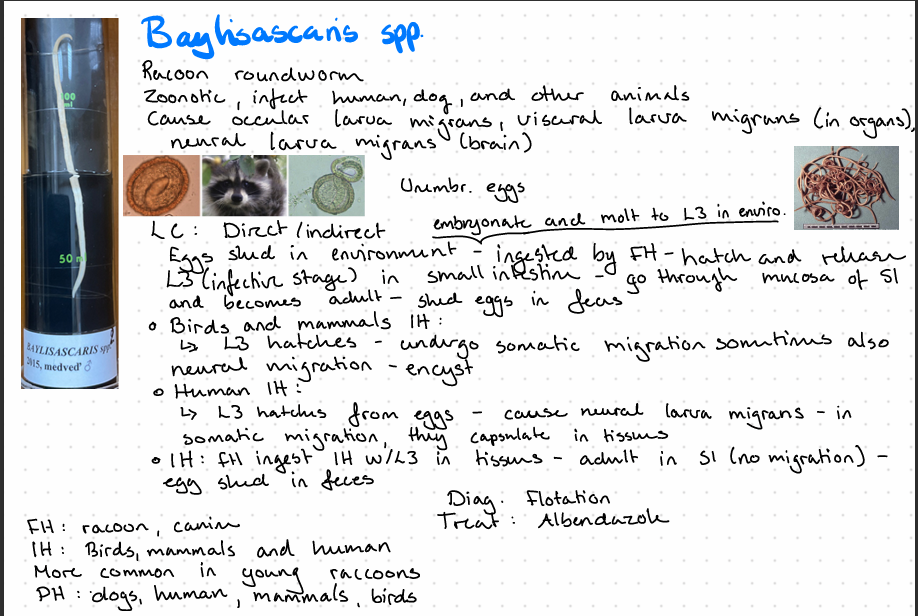 Baylisascaris spp.
Racoon roundworm
Zoonotic, infect human, dog, and other animals
Cause occular larva migrans, visceral larva migrans (in organs),
neural larva migrans (brain)
Unembr. eggs
embryonate and molt to L3 in enviro.
LC: Direct/indirect
Eggs shed in environment - ingested by FH - hatch and release
L3 (infective stage) in small intestine - go through mucosa of SI
and becomes adult - shed eggs in feces
• Birds and mammals IH:
↳ L3 hatches - undergo somatic migration sometimes also
neural migration - encyst
• Human IH:
↳ L3 hatches from eggs - cause neural larva migrans - in
somatic migration, they capsulate in tissues
• IH: FH ingest IH w/L3 in tissues - adult in SI (no migration) -
egg shed in feces
Diag. Flotation
Treat: Albendazole
FH: racoon, canine
IH: Birds, mammals and human
More common in young raccoons
PH: dogs, human, mammals, birds
00
ml
50 m
BAYLISASCARIS spp.
2015, medved' ♂